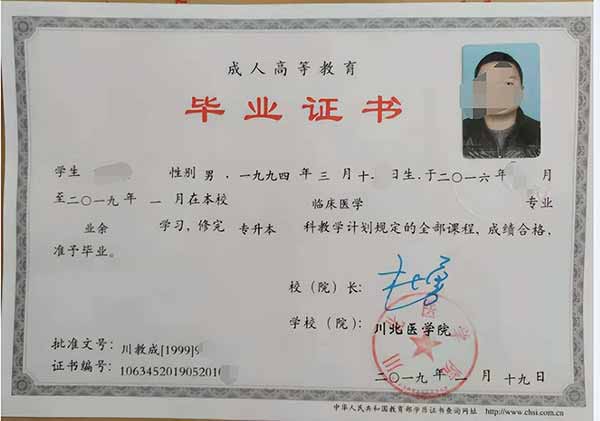 成人高等教育
毕业证书
学生 性别 男，一九九四年 三 月 十 日生，于二〇一六年 月
至二〇一九年 一 月在本校 临床医学 专业
业余 学习，修完 专升本 科教学计划规定的全部课程，成绩合格，
准予毕业。
校（院）长：
学校（院）：川北医学院
批准文号：川教成[1999]9
证书编号：106345201905201
二〇一九年 一 月 十九日
中华人民共和国教育部学历证书查询网址 http://www.chsi.com.cn